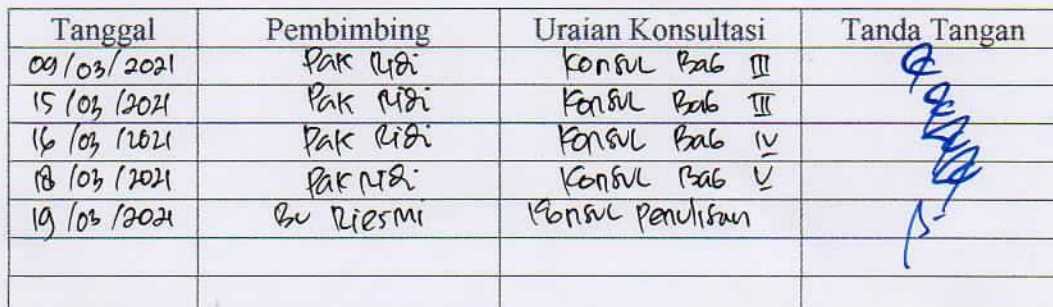 Tanggal Pembimbing Uraian Konsultasi Tanda Tangan
09/03/2021 Pak Rizi Konsul Bab III
15/03/2021 Pak Rizi Konsul Bab III
16/03/2021 Pak Rizi Konsul Bab IV
18/03/2021 Pak Rizi Konsul Bab V
19/03/2021 Bu Riesmi Konsul Penulisan